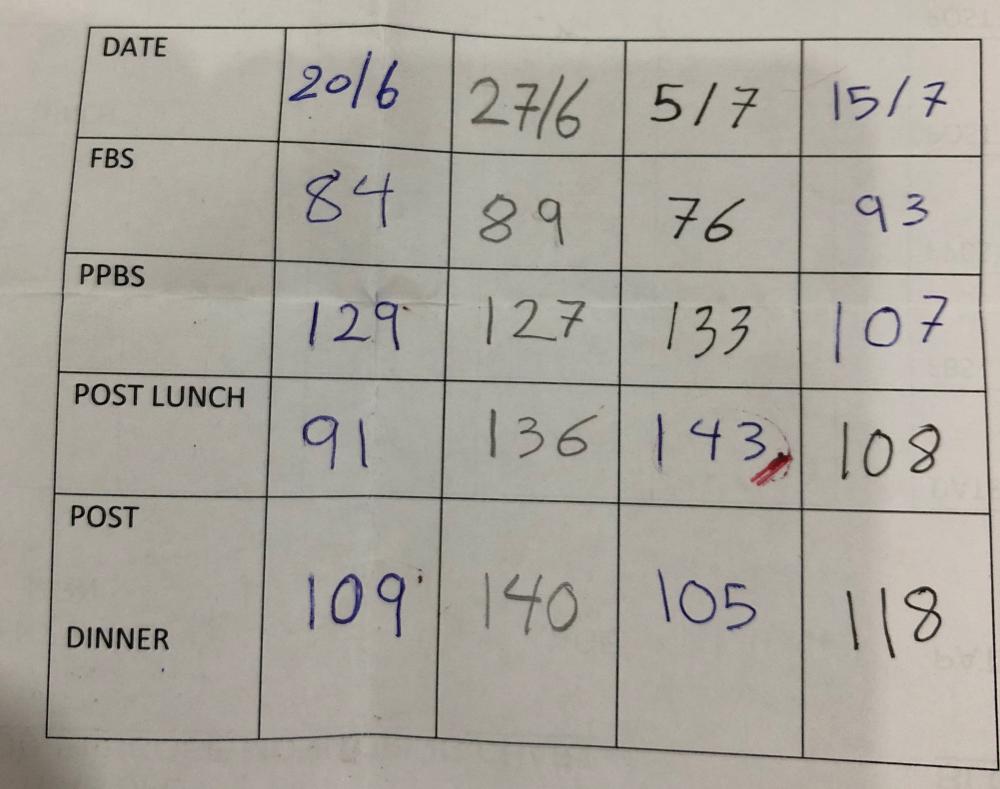 DATE 20/6 27/6 5/7 15/7
FBS 84 89 76 93
PPBS 129 127 133 107
POST LUNCH 91 136 143 108
POST
DINNER 109 140 105 118